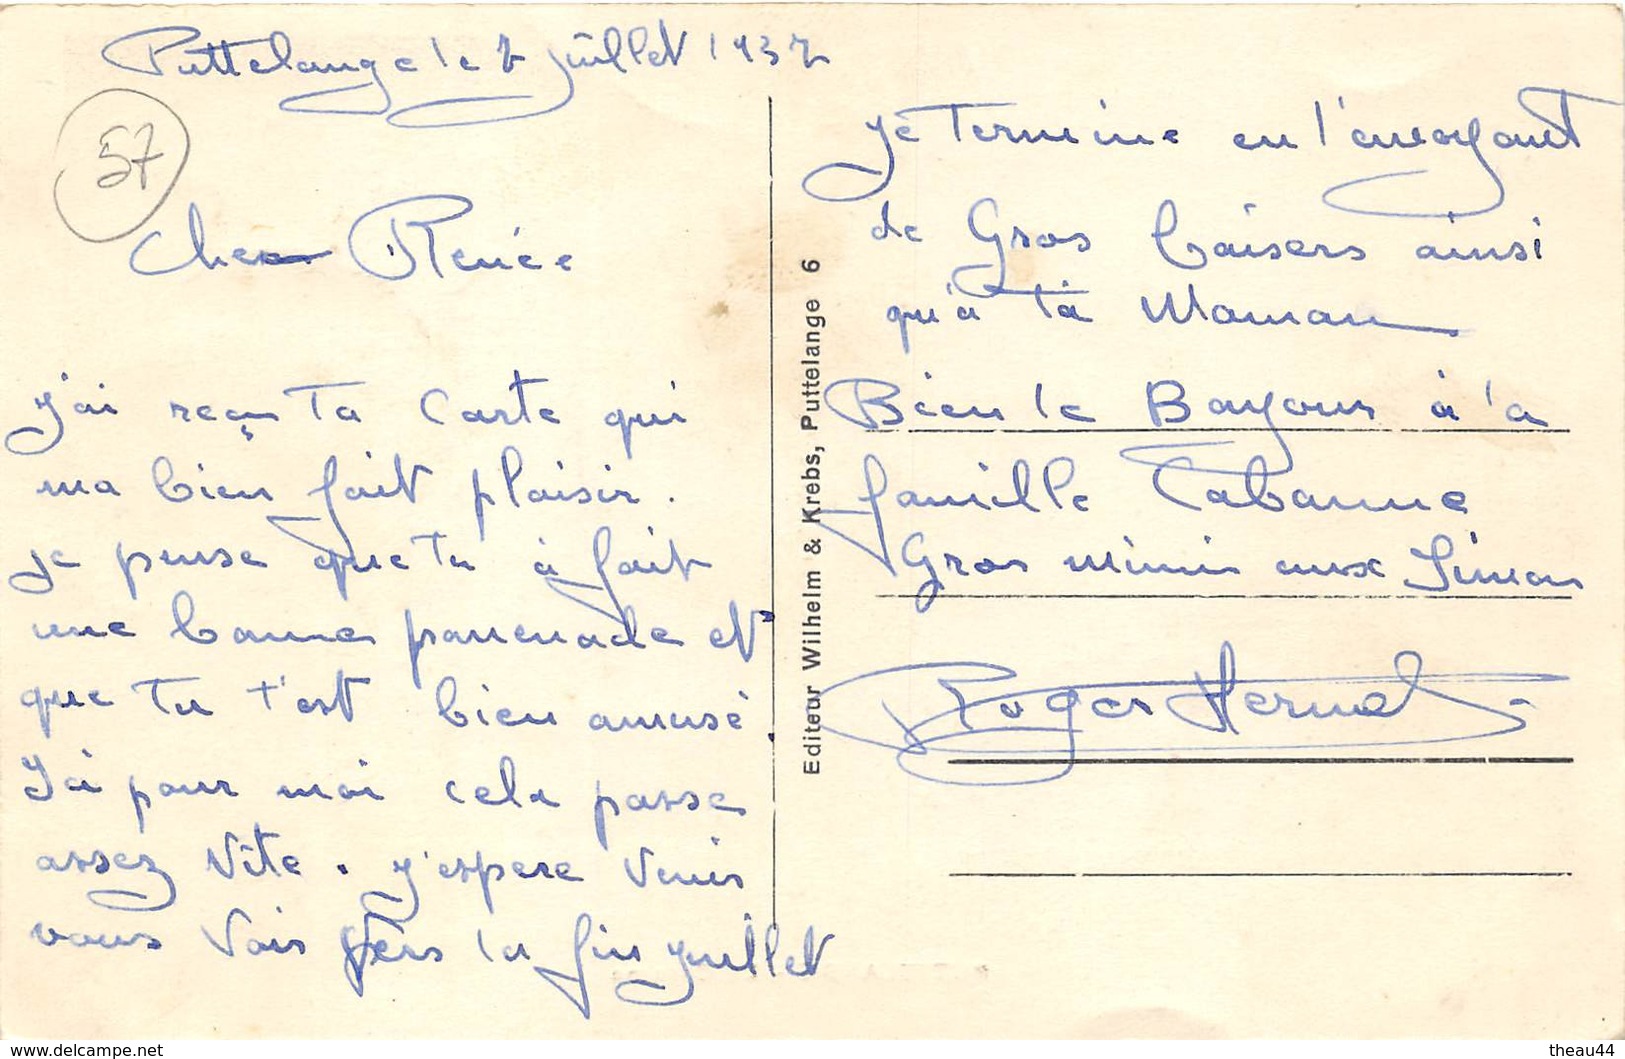 Puttelange le 7 juillet 1937
57
Cher Renée
J'ai reçu Ta Carte qui
ma bien fait plaisir.
je pense que Tu à fait
une bonne promenade et
que Tu t'est bien amusé.
Ici pour moi cela passe
assez Vite. j'espere Venir
vous Voir Vers la fin juillet
Je Termine en l'envoyant
de Gros baisers ainsi
qu'à Tà Maman
Bien le Bonjour à la
famille Cabanne
Gros mimis aux
Roger
Editeur Wilhelm & Krebs, Puttelange 6
https://www.delcampe.net
theau44